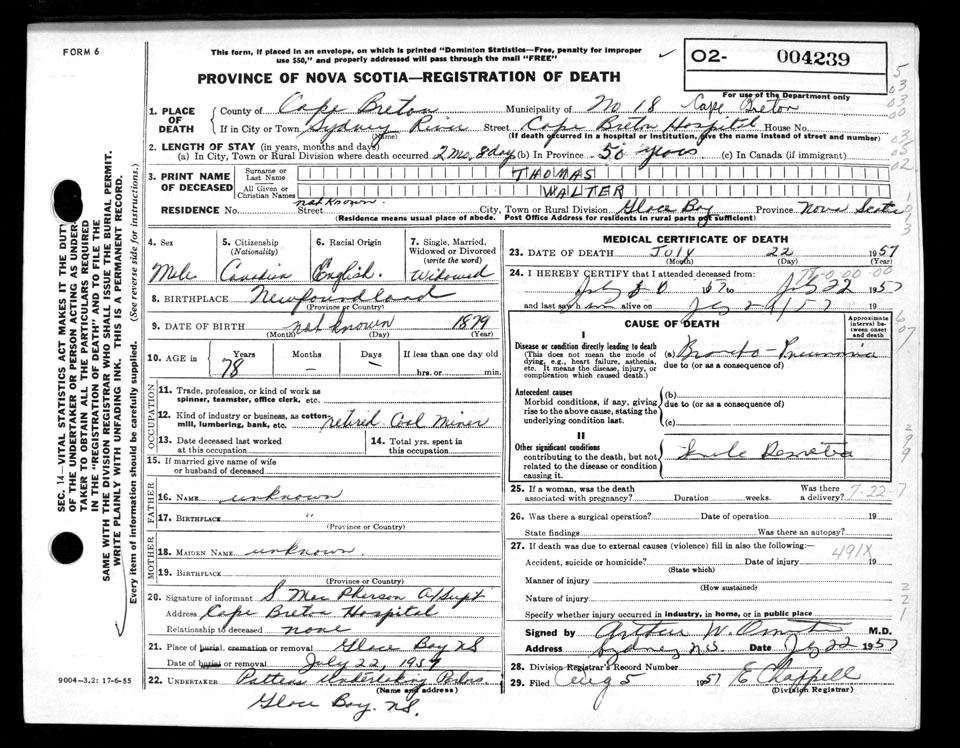 FORM 6
This form, if placed in an envelope, on which is printed "Dominion Statistics—Free, penalty for improper
use $50," and properly addressed will pass through the mail "FREE"
O2- 004239
For use of the Department only
PROVINCE OF NOVA SCOTIA—REGISTRATION OF DEATH
1. PLACE OF DEATH
County of Cape Breton Municipality of No 18 Cape Breton
If in City or Town Sydney River Street Cape Breton Hospital House No.
(Name) (If death occurred in a hospital or institution, give the name instead of street and number)
2. LENGTH OF STAY (in years, months and days)
(a) In City, Town or Rural Division where death occurred 2 mo, 8 days (b) In Province 50 years (c) In Canada (if immigrant)
3. PRINT NAME OF DECEASED
Surname or Last Name THOMAS
All Given or Christian Names WALTER
RESIDENCE No. not known Street City, Town or Rural Division Glace Bay Province Nova Scotia
(Residence means usual place of abode. Post Office Address for residents in rural parts not sufficient)
4. Sex
Male
5. Citizenship (Nationality)
Canadian
6. Racial Origin
English.
7. Single, Married, Widowed or Divorced (write the word)
Widowed
8. BIRTHPLACE Newfoundland
(Province or Country)
9. DATE OF BIRTH not known 1879
(Month) (Day) (Year)
10. AGE in
Years Months Days If less than one day old
78 – – hrs. or min.
OCCUPATION
11. Trade, profession, or kind of work as
spinner, teamster, office clerk, etc.
12. Kind of industry or business, as cotton-
mill, lumbering, bank, etc. retired Coal Miner
13. Date deceased last worked
at this occupation
14. Total yrs. spent in
this occupation
15. If married give name of wife
or husband of deceased
FATHER
16. NAME unknown
17. BIRTHPLACE "
(Province or Country)
MOTHER
18. MAIDEN NAME unknown
19. BIRTHPLACE
(Province or Country)
20. Signature of informant S Mac Pherson A/Supt
Address Cape Breton Hospital
Relationship to deceased none
21. Place of burial, cremation or removal Glace Bay NS
Date of burial or removal July 22, 1957
22. UNDERTAKER Pattens Undertaking Parlors.
(Name and address)
Glace Bay. NS.
9004-3.2: 17-6-55
SEC. 14—VITAL STATISTICS ACT MAKES IT THE DUTY
OF THE UNDERTAKER OR PERSON ACTING AS UNDER-
TAKER TO OBTAIN ALL THE PARTICULARS REQUIRED
IN THE "REGISTRATION OF DEATH" AND TO FILE THE
SAME WITH THE DIVISION REGISTRAR WHO SHALL ISSUE THE BURIAL PERMIT.
WRITE PLAINLY WITH UNFADING INK. THIS IS A PERMANENT RECORD.
Every item of information should be carefully supplied. (See reverse side for instructions.)
MEDICAL CERTIFICATE OF DEATH
23. DATE OF DEATH JULY 22 1957
(Month) (Day) (Year)
24. I HEREBY CERTIFY that I attended deceased from
to July 22 1957
and last saw h alive on 19
CAUSE OF DEATH
Approximate interval between onset and death
I
Disease or condition directly leading to death
(This does not mean the mode of
dying, e.g., heart failure, asthenia,
etc. It means the disease, injury, or
complication which caused death.)
(a) Broncho-Pneumonia
due to (or as a consequence of)
Antecedent causes
Morbid conditions, if any, giving
rise to the above cause, stating the
underlying condition last.
(b)
due to (or as a consequence of)
(c)
II
Other significant conditions
contributing to the death, but not
related to the disease or condition
causing it.
Senile Dementia
25. If a woman, was the death
associated with pregnancy? Duration weeks. Was there
a delivery? 7-22-7
26. Was there a surgical operation? Date of operation 19
State findings Was there an autopsy?
27. If death was due to external causes (violence) fill in also the following:—
491X
Accident, suicide or homicide? Date of injury 19
(State which)
Manner of injury
(How sustained)
Nature of injury
Specify whether injury occurred in industry, in home, or in public place
Signed by Arthur W. M.D.
Address Sydney N.S. Date July 22 1957
28. Division Registrar's Record Number
29. Filed Aug 5 1957 E Chappell
(Division Registrar)